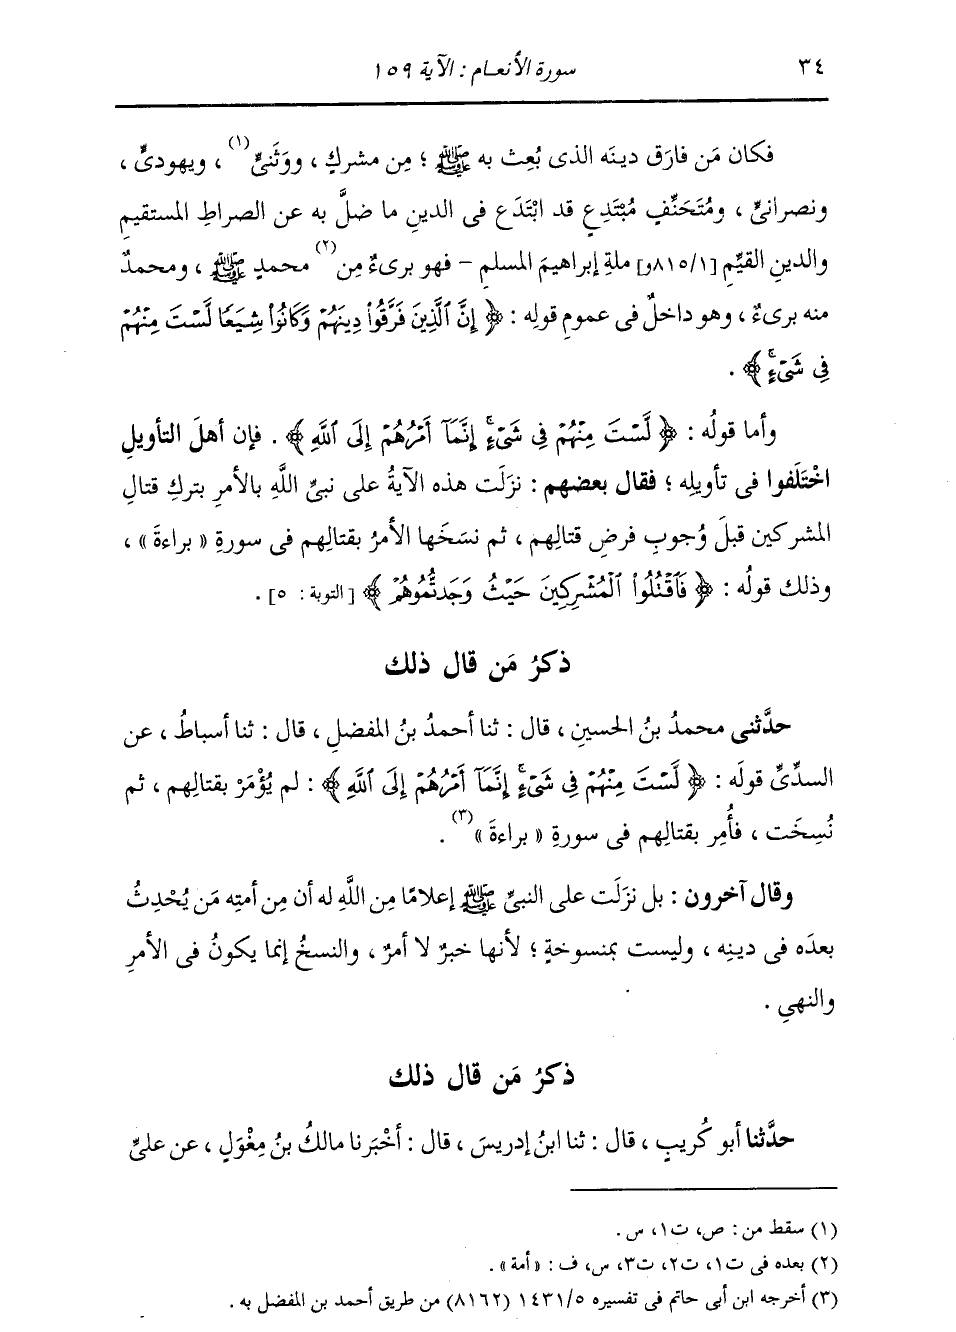 ٣٤ سورة الأنعام : الآية ١٥٩
فكان مَن فارَق دينَه الذى بُعِث به ﷺ ؛ مِن مشركٍ ، ووَثَنىٍّ(١) ، ويهودىٍّ ،
ونصرانىٍّ ، ومُتَحَنِّفٍ مُبْتَدِعٍ قد ابْتَدَع فى الدينِ ما ضلَّ به عن الصراطِ المستقيمِ
والدينِ القيِّمِ [٨١٥/١و] ملةِ إبراهيمَ المسلمِ – فهو برىءٌ مِن(٢) محمدٍ ﷺ ، ومحمدٌ
منه برىءٌ ، وهو داخلٌ فى عمومِ قولِه : ﴿ إِنَّ ٱلَّذِينَ فَرَّقُوا۟ دِينَهُمْ وَكَانُوا۟ شِيَعًا لَّسْتَ مِنْهُمْ
فِى شَىْءٍ ۚ ﴾ .
وأما قولُه : ﴿ لَّسْتَ مِنْهُمْ فِى شَىْءٍ ۚ إِنَّمَآ أَمْرُهُمْ إِلَى ٱللَّهِ ﴾ . فإن أهلَ التأويلِ
اخْتَلَفوا فى تأويلِه ؛ فقال بعضهم : نزَلَت هذه الآيةُ على نبىِّ اللَّهِ بالأمرِ بتركِ قتالِ
المشركين قبلَ وُجوبِ فرضِ قتالِهم ، ثم نسَخَها الأمرُ بقتالِهم فى سورةِ « براءةَ » ،
وذلك قولُه : ﴿ فَٱقْتُلُوا۟ ٱلْمُشْرِكِينَ حَيْثُ وَجَدتُّمُوهُمْ ﴾ [ التوبة : ٥] .
ذكرُ مَن قال ذلك
حدَّثنى محمدُ بنُ الحسينِ ، قال : ثنا أحمدُ بنُ المفضلِ ، قال : ثنا أسباطُ ، عن
السدِّىِّ قولَه : ﴿ لَّسْتَ مِنْهُمْ فِى شَىْءٍ ۚ إِنَّمَآ أَمْرُهُمْ إِلَى ٱللَّهِ ﴾ : لم يُؤْمَرْ بقتالِهم ، ثم
نُسِخَت ، فأُمِر بقتالِهم فى سورةِ « براءةَ »(٣) .
وقال آخرون : بل نزَلَت على النبىِّ ﷺ إعلامًا مِن اللَّهِ له أن مِن أمتِه مَن يُحْدِثُ
بعدَه فى دينِه ، وليست بمنسوخةٍ ؛ لأنها خبرٌ لا أمرٌ ، والنسخُ إنما يكونُ فى الأمرِ
والنهىِ .
ذكرُ مَن قال ذلك
حدَّثنا أبو كُريبٍ ، قال : ثنا ابنُ إدريسَ ، قال : أخْبَرنا مالكُ بنُ مِغْوَلٍ ، عن علىِّ
(١) سقط من : ص، ت١، س .
(٢) بعده فى ت١، ت٢، ت٣، س، ف : « أمة » .
(٣) أخرجه ابن أبى حاتم فى تفسيره ١٤٣١/٥ (٨١٦٢) من طريق أحمد بن المفضل به .